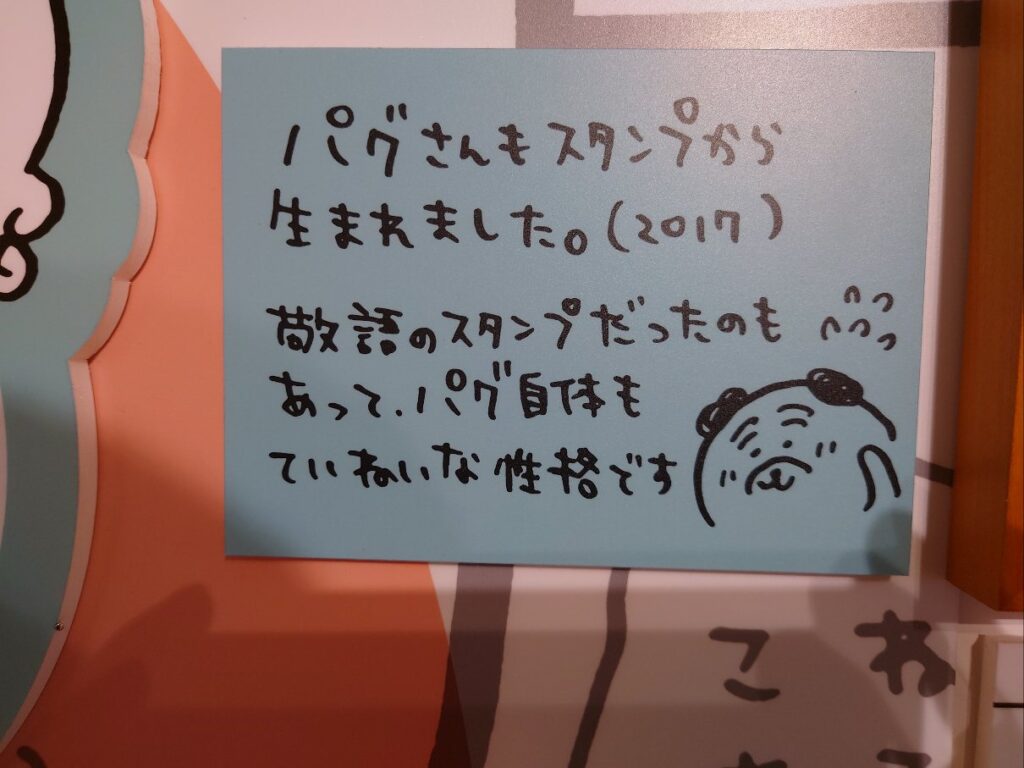 パグさんもスタンプから
生まれました。(2017)
敬語のスタンプだったのも
あって、パグ自体も
ていねいな性格です
こ ね